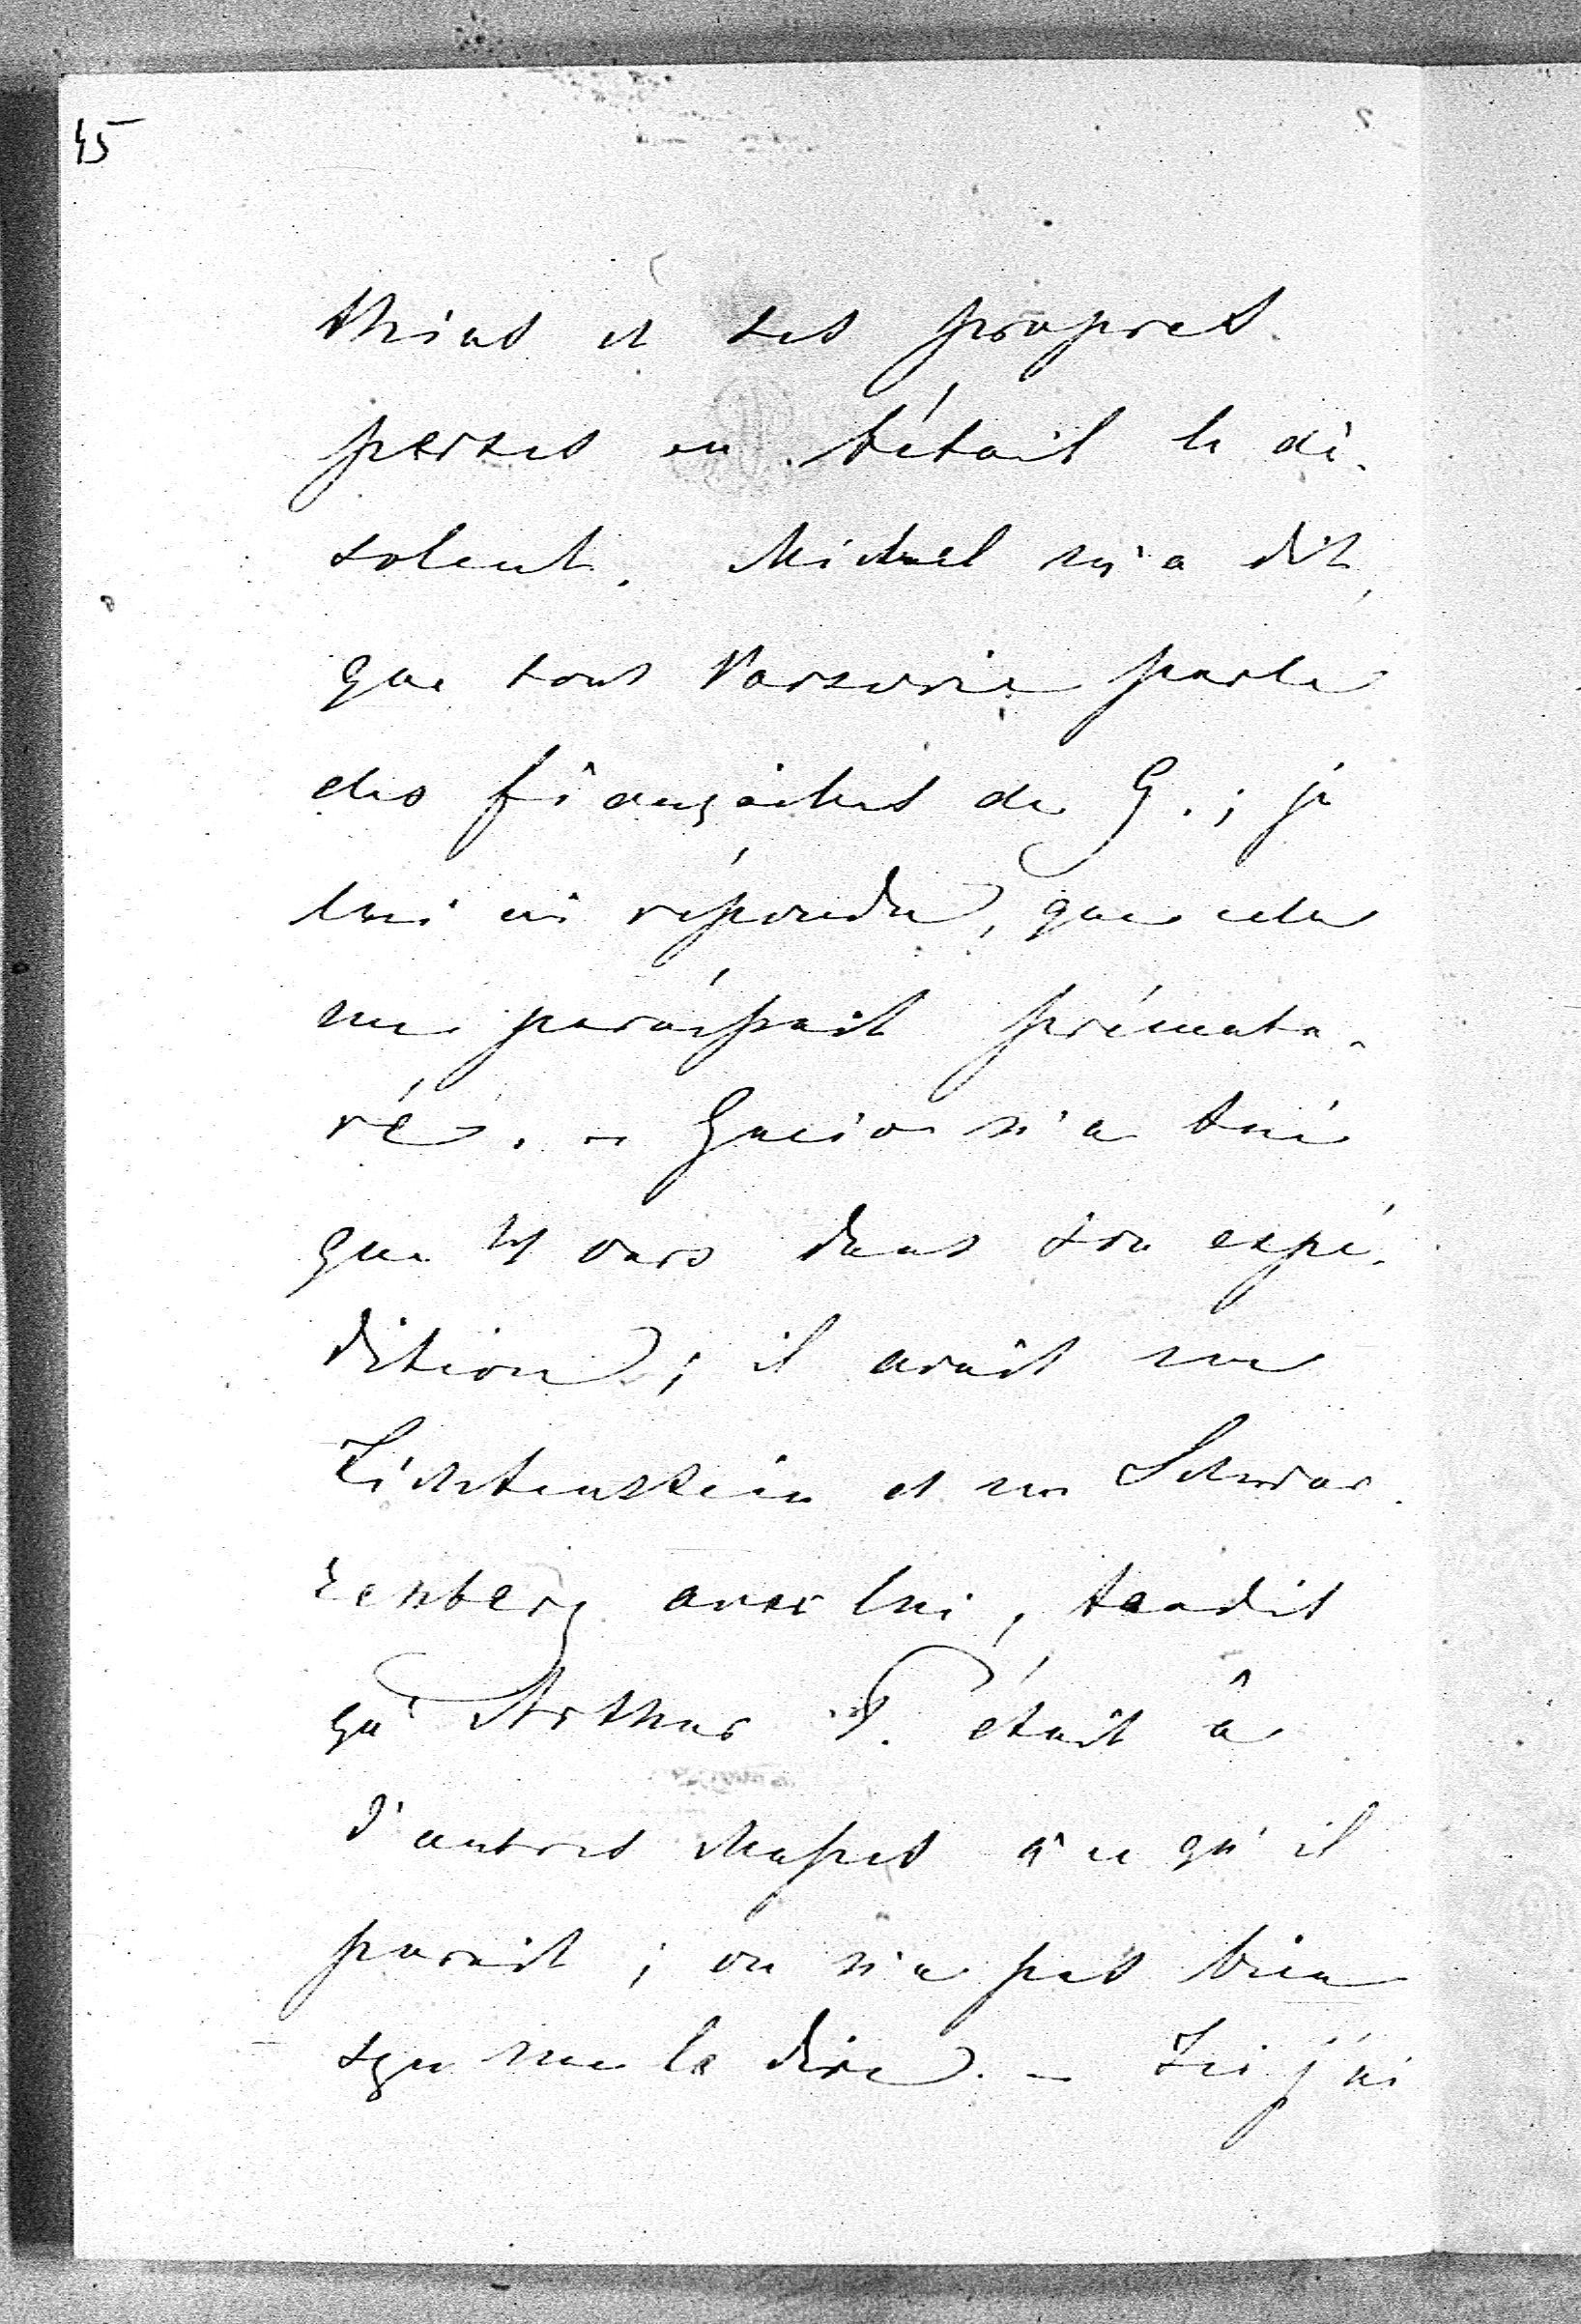 45
thias et ses propres
pertes en détail le dé-
solent. Michel m'a dit,
que tout Varsovie parle
des fiançailles de G.; je
lui ai répondu, que cela
me paraissait prématu-
ré. – Gucio n'a tué
que ours dans son expé-
dition; il avait un
Lichtenstein et un Schwar-
zenberg avec lui, tandis
qu'Arthur P. était à
d'autres chasses à ce qu'il
parait; on n'a pas bien
sçu me le dire. – Ici j'ai